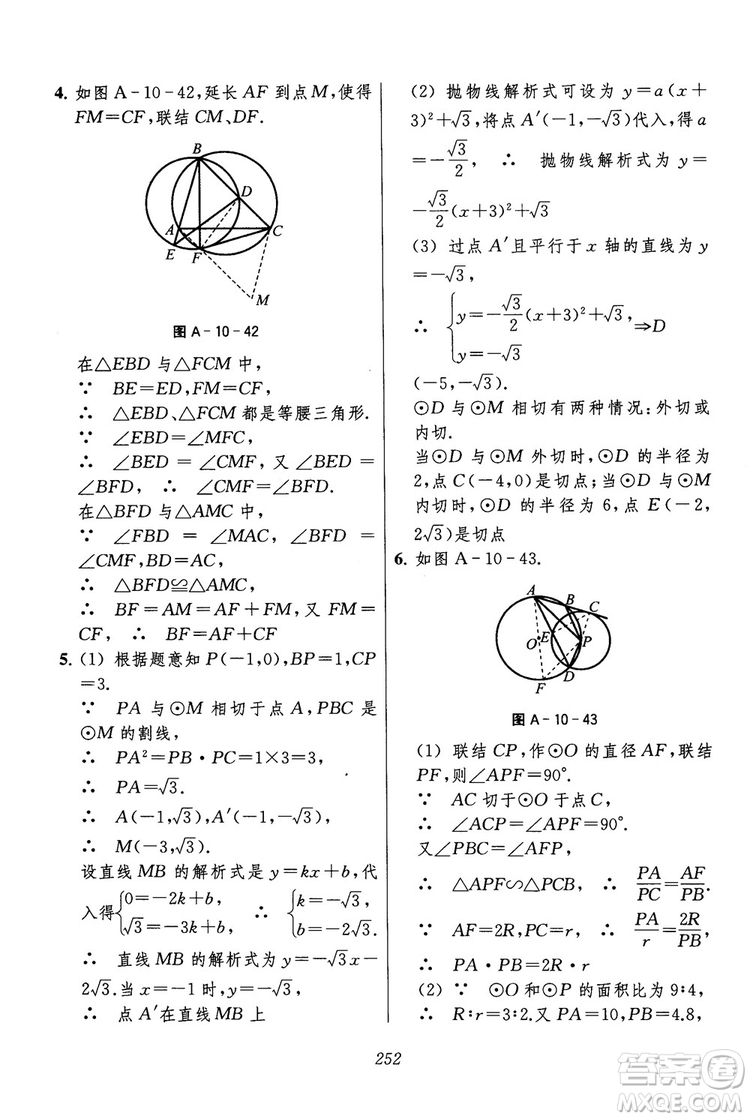 4. 如图 A-10-42,延长 AF 到点 M,使得
FM=CF,联结 CM、DF.
B
D
A
C
E
F
M
图 A-10-42
在△EBD 与△FCM 中,
∵ BE=ED,FM=CF,
∴ △EBD、△FCM 都是等腰三角形.
∵ ∠EBD=∠MFC,
∴ ∠BED =∠CMF,又∠BED=
∠BFD, ∴ ∠CMF=∠BFD.
在△BFD 与△AMC 中,
∵ ∠FBD =∠MAC, ∠BFD =
∠CMF,BD=AC,
∴ △BFD≌△AMC,
∴ BF=AM=AF+FM,又 FM=
CF, ∴ BF=AF+CF
5. (1) 根据题意知 P(-1,0),BP=1,CP
=3.
∵ PA 与⊙M 相切于点 A,PBC 是
⊙M 的割线,
∴ PA²=PB·PC=1×3=3.
∴ PA=√3.
∴ A(-1,√3),A′(-1,-√3).
∴ M(-3,√3).
设直线 MB 的解析式是 y=kx+b,代
入得{0=-2k+b, √3=-3k+b, ∴ {k=-√3, b=-2√3.
∴ 直线 MB 的解析式为 y=-√3x-
2√3.当 x=-1 时,y=-√3,
∴ 点 A′在直线 MB 上
(2) 抛物线解析式可设为 y=a(x+
3)²+√3,将点 A′(-1,-√3)代入,得 a
=-√3/2, ∴ 抛物线解析式为 y=
-√3/2(x+3)²+√3
(3) 过点 A′且平行于 x 轴的直线为 y
=-√3,
∴ {y=-√3/2(x+3)²+√3, y=-√3 ⇒D
(-5,-√3).
⊙D 与⊙M 相切有两种情况:外切或
内切.
当⊙D 与⊙M 外切时,⊙D 的半径为
2,点 C(-4,0)是切点;当⊙D 与⊙M
内切时,⊙D 的半径为 6,点 E(-2,
2√3)是切点
6. 如图 A-10-43.
A
B
C
O
E
P
D
F
图 A-10-43
(1) 联结 CP,作⊙O 的直径 AF,联结
PF,则∠APF=90°.
∵ AC 切于⊙O 于点 C,
∴ ∠ACP=∠APF=90°.
又∠PBC=∠AFP,
∴ △APF∽△PCB, ∴ PA/PC=AF/PB.
∵ AF=2R,PC=r, ∴ PA/r=2R/PB,
∴ PA·PB=2Rr.
(2) ∵ ⊙O 和⊙P 的面积比为 9:4,
∴ R:r=3:2.又 PA=10,PB=4.8,
252
答案圈
MXQE.COM